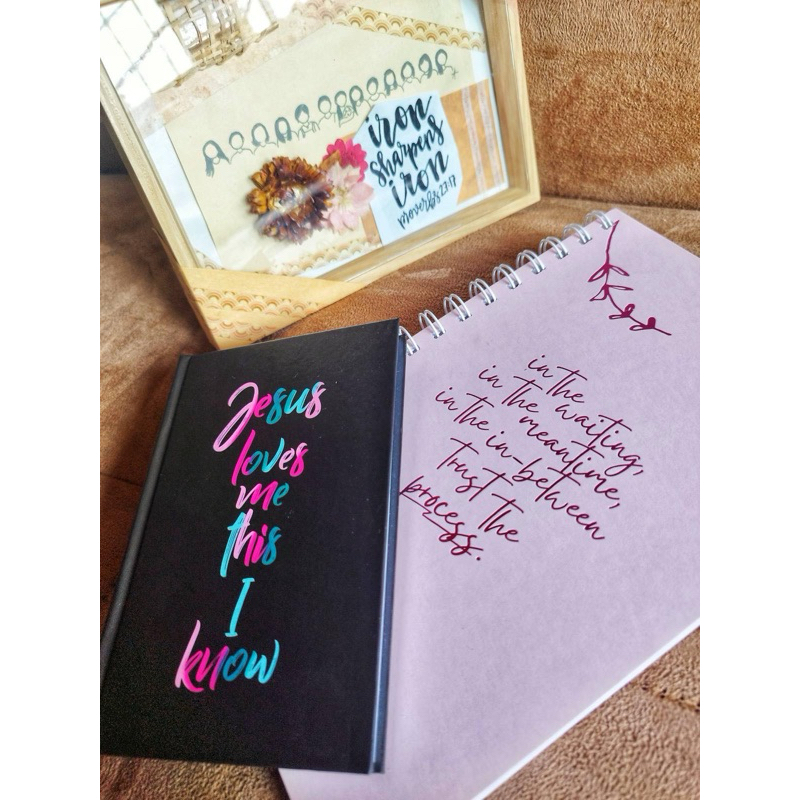 iron
sharpens
iron
proverbs 27:17
in the
in the waiting,
in the meantime,
in the in-between
Trust the
process.
Jesus
loves
me
this
I
know